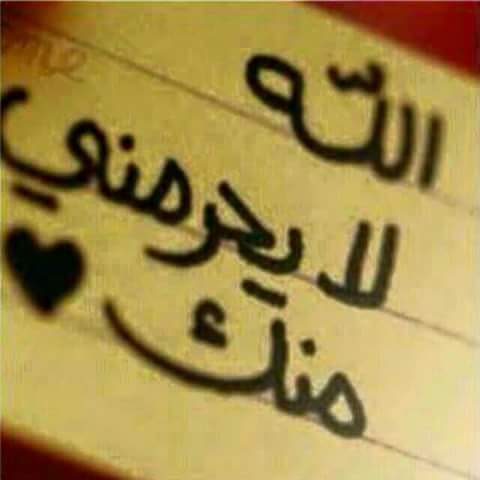 اللّه
لا يحرمني
منك ♥